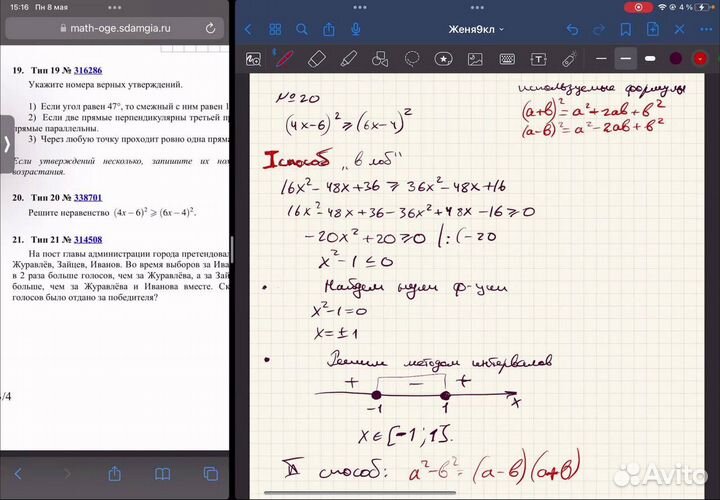 15:16 Пн 8 мая
4 %
math-oge.sdamgia.ru
Женя9кл
19. Тип 19 № 316286
Укажите номера верных утверждений.
1) Если угол равен 47°, то смежный с ним равен 1
2) Если две прямые перпендикулярны третьей п
прямые параллельны.
3) Через любую точку проходит ровно одна пряма
Если утверждений несколько, запишите их но
возрастания.
20. Тип 20 № 338701
Решите неравенство (4x − 6)² ⩾ (6x − 4)².
21. Тип 21 № 314508
На пост главы администрации города претендовал
Журавлёв, Зайцев, Иванов. Во время выборов за Ива
в 2 раза больше голосов, чем за Журавлёва, а за Зай
больше, чем за Журавлёва и Иванова вместе. Ск
голосов было отдано за победителя?
/4
№20
(4x-6)² ⩾ (6x-4)²
используемые формулы
(a+b)² = a²+2ab+b²
(a-b)² = a²-2ab+b²
I способ „в лоб"
16x²-48x+36 ⩾ 36x²-48x+16
16x²-48x+36-36x²+48x-16⩾0
-20x²+20⩾0 |:(-20
x²-1⩽0
• Найдем нули ф-ции
x²-1=0
x=±1
• Решим методом интервалов
+ − +
-1 1 x
x∈[-1;1].
II способ: a²-b²=(a-b)(a+b)
Avito